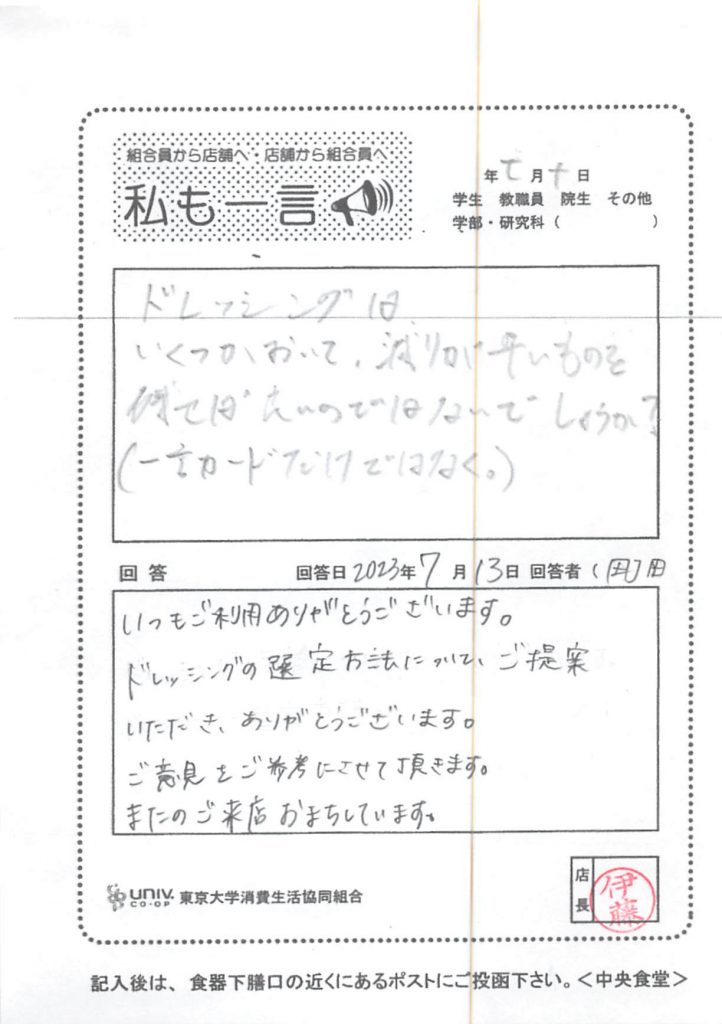 組合員から店舗へ・店舗から組合員へ
私も一言
年 七 月 十 日
学生 教職員 院生 その他
学部・研究科（ ）
ドレッシングは
いくつかおいて、減りが早いものを
ではないでしょうか?
(一言カードだけではなく。)
回答 回答日 2023年 7月 13日 回答者（
いつもご利用ありがとうございます。
ドレッシングの選定方法について、ご提案
いただき、ありがとうございます。
ご意見をご参考にさせて頂きます。
またのご来店おまちしています。
UNIV. CO-OP 東京大学消費生活協同組合
店長 伊藤
記入後は、食器下膳口の近くにあるポストにご投函下さい。＜中央食堂＞